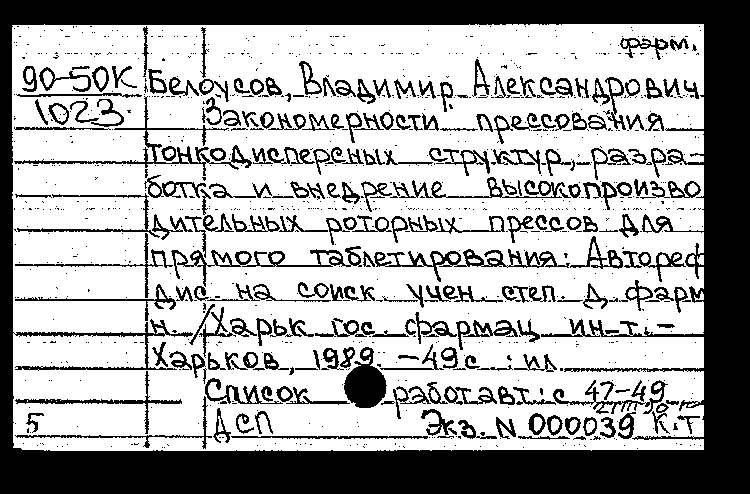 фарм.
90-50К Белоусов, Владимир Александрович
1023 Закономерности прессования
тонкодисперсных структур, разра-
ботка и внедрение высокопроизво
дительных роторных прессов для
прямого таблетирования: Автореф
дис. на соиск. учен. степ. д. фарм
н. / Харьк гос. фармац ин-т. -
Харьков, 1989. - 49 с : ил
Список работ авт.: с 47-49
5 ДСП Экз. N 000039 К.Т